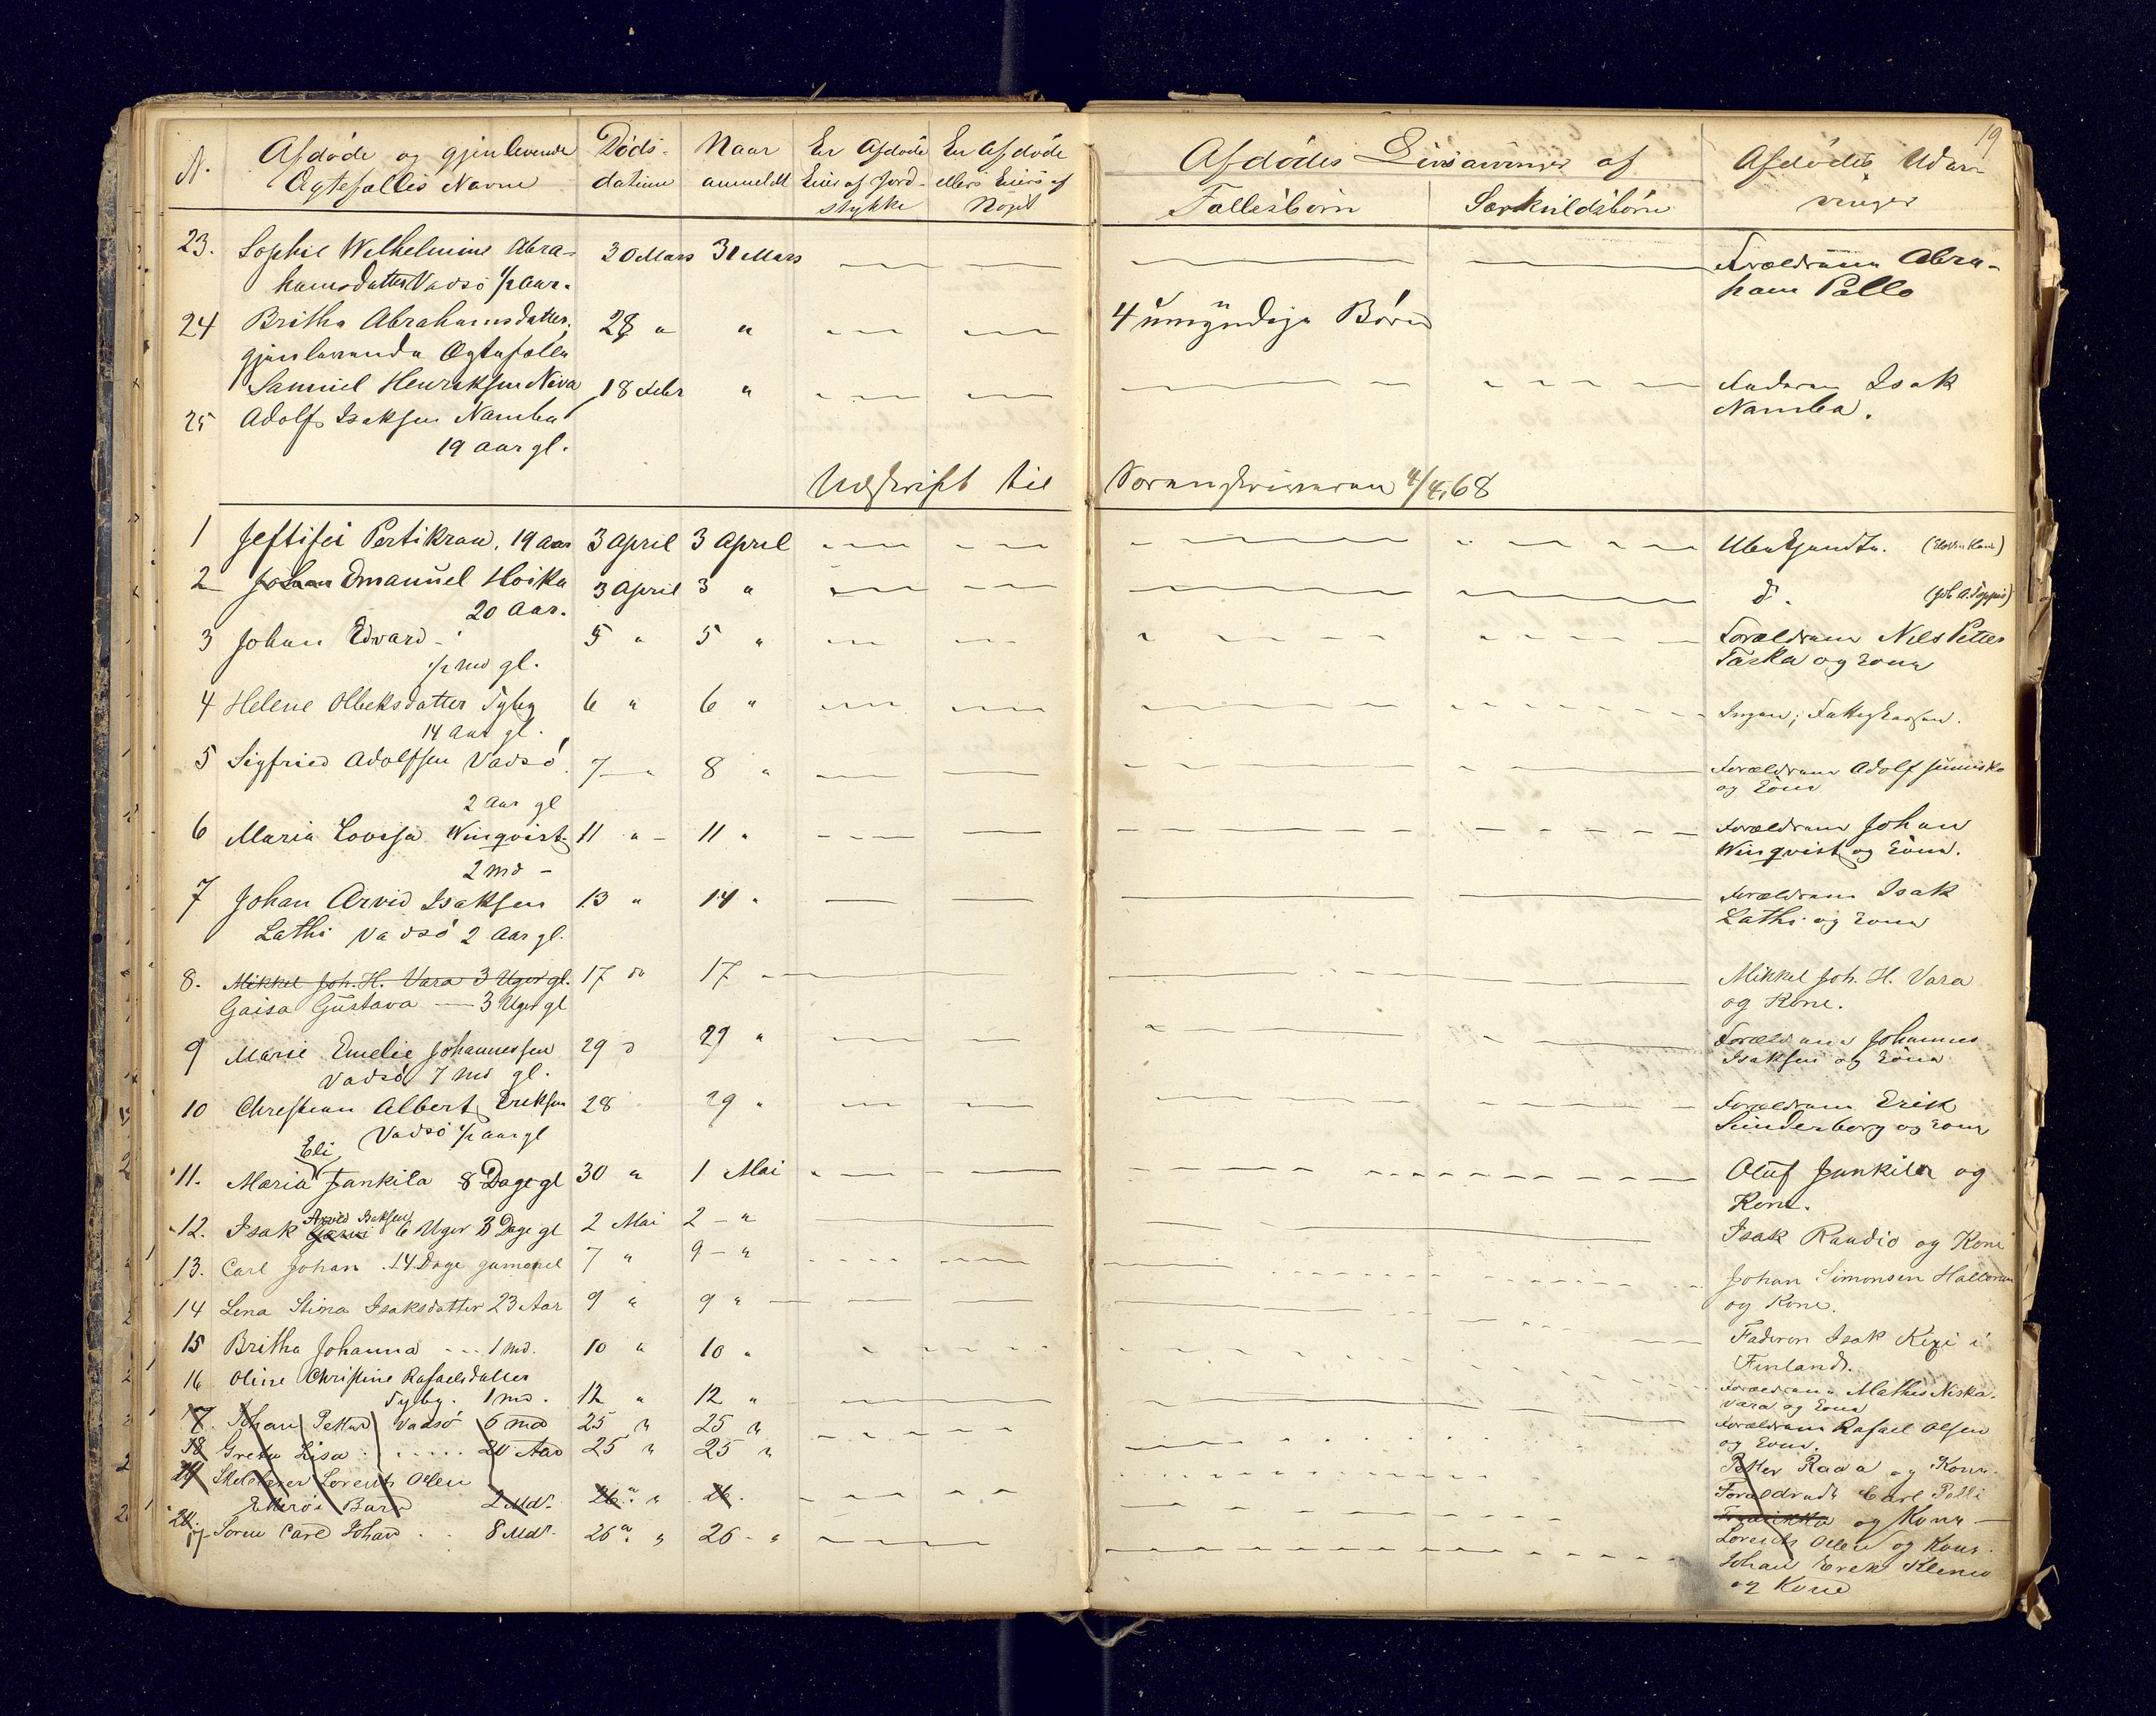 19
N. Afdøde og gjenlevende Døds- Naar Er Afdøde Er Afdøde Afdødes Livsarvinger af Afdødes Udar-
Ægtefælles Navne datum anmeldt Eier af Jord- ellers Eier af Fællesbørn Særkuldsbørn vinger
stykke Noget
23. Sophie Wilhelmine Abra- 30 Mars 31 Mars Forældrene Abra-
hamsdatter Vadsö 1/2 Aar. ham Pallo
24 Britha Abrahamsdatter, 28 " " 4 umyndige Börn
gjenlevende Ægtefælle
Samuel Henriksen Niva
25 Adolf Isaksen Namba 18 Febr " Faderen Isak
19 Aar gl. Namba.
Udskrift til Sorenskriveren 4/4 68
1 Jeftifei Pertikran, 19 Aar 3 April 3 April Ubekjendte.
2 Johan Emanuel Hoika 3 April 3 " d.
20 Aar.
3 Johan Edvard - 5 " 5 " Forældrene Nils Petter
1/2 Md gl. Taska og Kone
4 Helene Olleksdatter Tyby 6 " 6 " Ingen; Fattigkassen.
14 Aar gl.
5 Sigfried Adolfsen Vadsö 7 " 8 " Forældrene Adolf
2 Aar gl og Kone
6 Maria Lovisa Winqvist 11 " 11 " Forældrene Johan
2 Md - Winqvist og Kone.
7 Johan Arvid Isaksen 13 " 14 " Forældrene Isak
Lathi Vadsö 2 Aar gl. Lathi og Kone
8. Mikkel Joh. H. Vara 3 Uger gl. 17 do 17 Mikkel Joh. H. Vara
Gaisa Gustava — 3 Uger gl og Kone.
9 Marie Emelie Johannessen 29 d 29 " Forældrene Johannes
Vadsö 7 Md gl. Isaksen og Kone
10 Christian Albert Eriksen 28 29 " Forældrene Erik
Vadsö 1/2 Aar gl Sunderborg og Kone
Eli
11. Maria Junkila 8 Dage gl 30 " 1 Mai Oluf Junkila og
Kone.
Arvid Isaksen
12. Isak 6 Uger 3 Dage gl 2 Mai 2 - " Isak Raudio og Kone
13. Carl Johan 14 Dage gammel 7 " 9 - " Johan Simonsen
og Kone.
14 Lena Stina Isaksdatter 23 Aar 9 " 9 " Faderen Isak i
Finland.
15 Britha Johanna - - - 1 Md. 10 " 10 " Forældrene Mathis Niska-
vara og Kone
16 Oline Christine Rafaelsdatter Forældrene Rafael Olsen
Tyby. 1 Md. 12 " 12 " og Kone.
17. Johan Petter Vadsö 6 Md 25 " 25 " Petter Rada og Kone.
18 Greta Lisa . . . . . 20 Aar 25 " 25 " Forældrene Carl Pelli
og Kone
19 Lorents Olsen
Barn 2 Md. 26 " " 26. Lorents Olsen og Kone.
20. Sören Carl Johan . . 8 Md. 26 " " 26 - " Johan Erik
17 og Kone